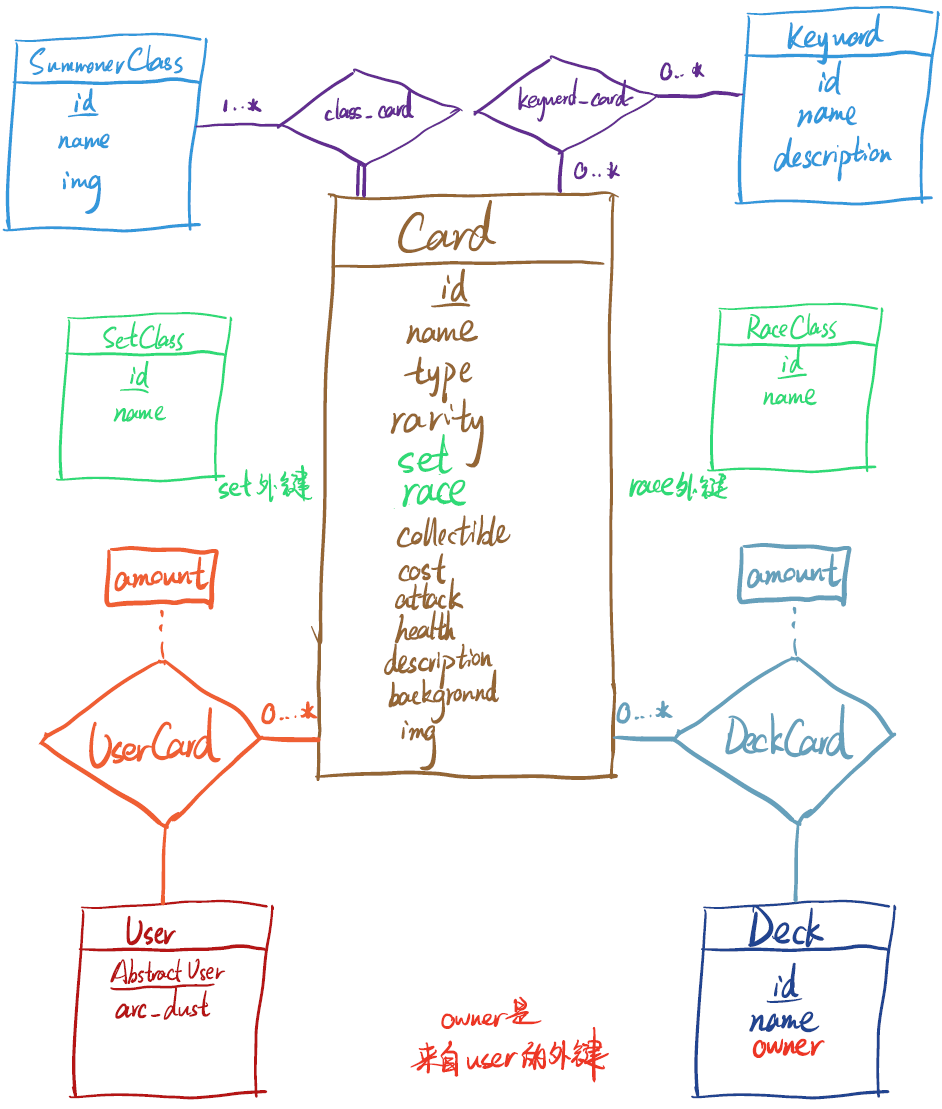 SummonerClass
id
name
img
1..*
class_card
keyword_card
0..*
0..*
Keyword
id
name
description
Card
id
name
type
rarity
set
race
collectible
cost
attack
health
description
background
img
SetClass
id
name
set外键
RaceClass
id
name
race外键
amount
UserCard
0...*
amount
DeckCard
0...*
User
AbstractUser
arc_dust
owner是
来自user的外键
Deck
id
name
owner